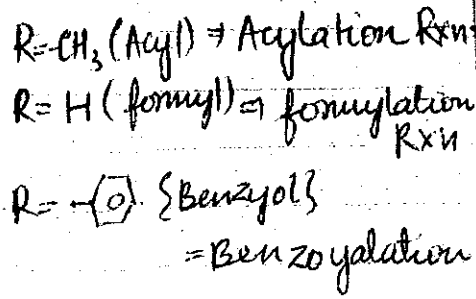 R=-CH3 (Acyl) ⇒ Acylation Rxn
R= H (formyl) ⇒ formylation
Rxn
R= {Benzyol}
=Benzoyalation